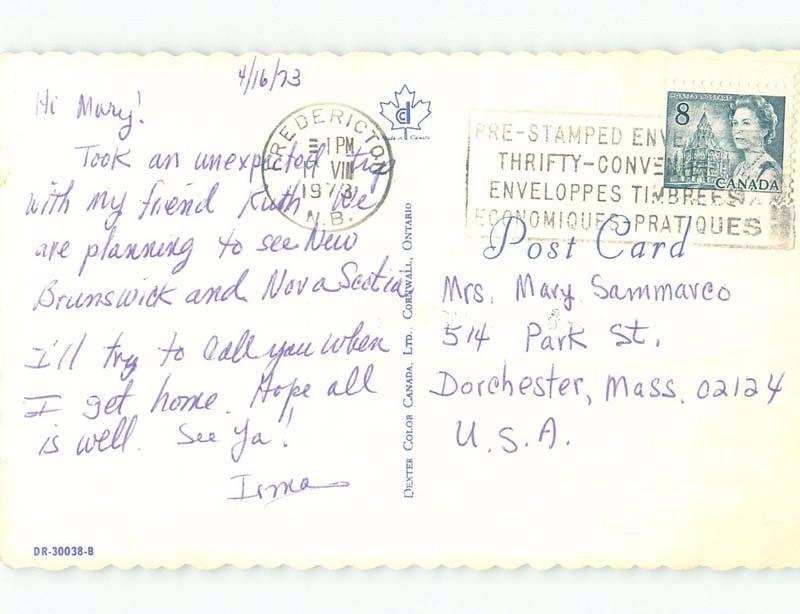 4/16/73
Hi Mary!
Took an unexpected trip
with my friend Ruth. We
are planning to see New
Brunswick and Nova Scotia
I'll try to call you when
I get home. Hope all
is well. See Ya!
Irma
DR-30038-B
FREDERICTON
1 PM
17 VIII
1973
N.B.
DEXTER COLOR CANADA, LTD., CORNWALL, ONTARIO
PRE-STAMPED ENVE
THRIFTY-CONVE
ENVELOPPES TIMBRÉES
ECONOMIQUES-PRATIQUES
8
POSTES POSTAGE
CANADA
Post Card
Mrs. Mary Sammarco
514 Park St.
Dorchester, Mass. 02124
U.S.A.